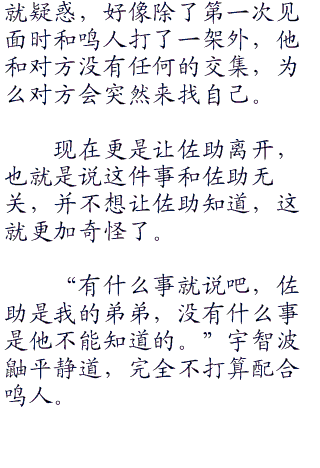 就疑惑，好像除了第一次见
面时和鸣人打了一架外，他
和对方没有任何的交集，为
么对方会突然来找自己。
现在更是让佐助离开，
也就是说这件事和佐助无
关，并不想让佐助知道，这
就更加奇怪了。
“有什么事就说吧，佐
助是我的弟弟，没有什么事
是他不能知道的。”宇智波
鼬平静道，完全不打算配合
鸣人。